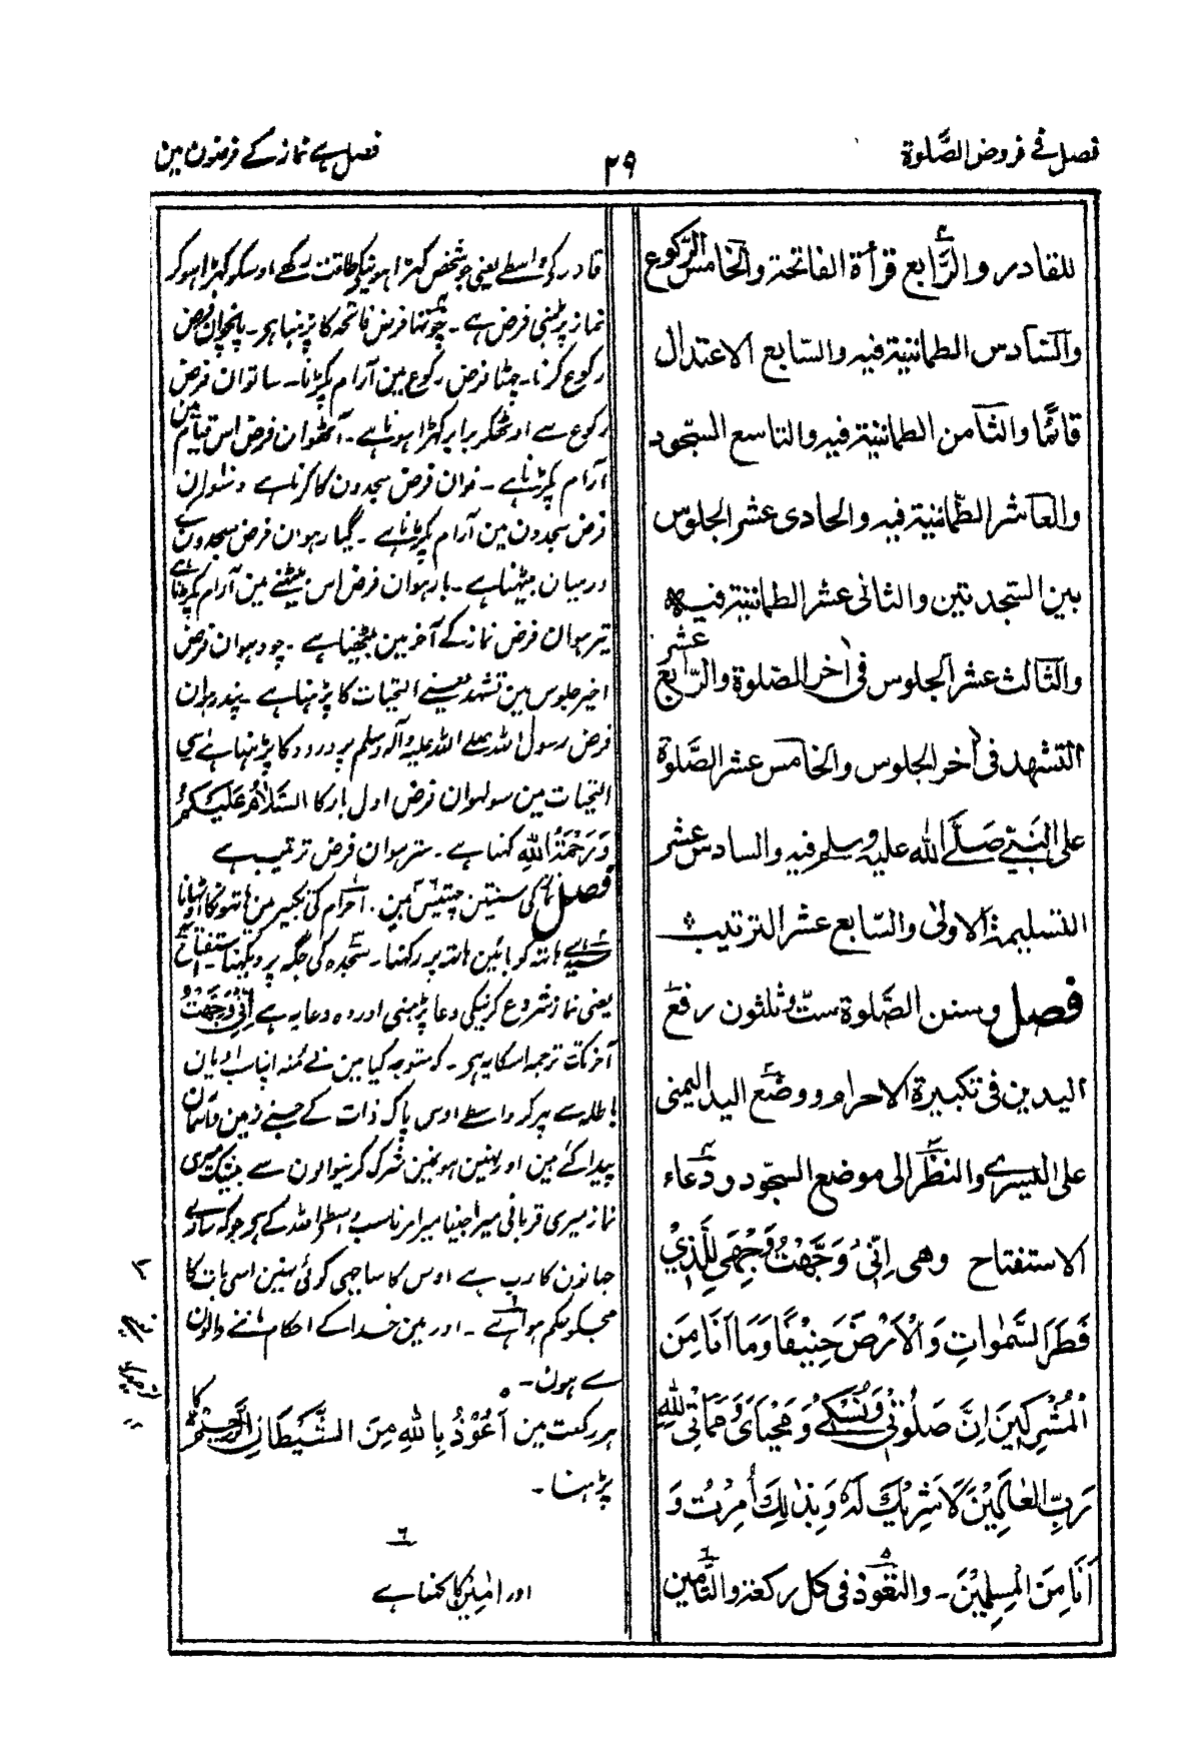 فصل فی فروض الصَّلوة
۲۹
فصل ہے نماز کے فرضون مین
للقادر والرَّابع قرأة الفاتحة والخامس الرّکوع
والسّادس الطمانیة فیه والسّابع الاعتدال
قائمًا والثامن الطمانیة فیه والتاسع السّجود
والعاشر الطّمانیة فیه والحادی عشر الجلوس
بین السّجدتین والثانی عشر الطمانیة فیه
والثالث عشر الجلوس فی اٰخر الصّلوة والرّابع عشر
التشهد فی اٰخر الجلوس والخامس عشر الصَّلوة
علی النَّبِیِّ صَلَّی الله علیه وسلم فیه والسادس عشر
التسلیمة الاولیٰ والسّابع عشر الترتیب
فصل وسنن الصَّلوة ستّ وثلثون رفع
الیدین فی تکبیرة الاحرام ووضع الید الیمنی
علی الیسرے والنظر الی موضع السجود ودعاء
الاستفتاح وهی اِنِّیْ وَجَّهْتُ وَجْهِیَ لِلَّذِیْ
فَطَرَ السَّمٰوَاتِ وَالْاَرْضَ حَنِیْفًا وَمَا اَنَا مِنَ
الْمُشْرِکِیْنَ اِنَّ صَلٰوتِیْ وَنُسُکِیْ وَمَحْیَایَ وَمَمَاتِیْ لِلّٰهِ
رَبِّ الْعَالَمِیْنَ لَا شَرِیْكَ لَهٗ وَبِذٰلِكَ اُمِرْتُ وَ
اَنَا مِنَ الْمُسْلِمِیْنَ۔ والتعوّذ فی کل رکعة والتّامین
قادر کے واسطے یعنی جو شخص کہڑا ہونیکی طاقت رکھے اوسکو کہڑا ہوکر
نماز پڑہنی فرض ہے۔ چوتھا فرض فاتحہ کا پڑہنا ہر۔ پانچوان فرض
رکوع کرنا۔ چھٹا فرض رکوع مین آرام پکڑنا۔ ساتوان فرض
رکوع سے اوٹھکر برابر کہڑا ہونا ہے۔ آٹھوان فرض اس قیام مین
آرام پکڑنا ہے۔ نوان فرض سجدون کا کرنا ہے دسوان
فرض سجدون مین آرام پکڑنا ہے۔ گیارہوان فرض سجدون کے
درمیان بیٹہنا ہے۔ بارہوان فرض اس بیٹہنے مین آرام پکڑنا ہے
تیرہوان فرض نماز کے آخر مین بیٹھنا ہے۔ چودہوان فرض
اخیر جلوس مین تشہد یعنے التحیات کا پڑہنا ہے۔ پندرہوان
فرض رسول اللہ صلے اللہ علیہ وآلہ وسلم پر درود کا پڑہنا ہے اسی
التحیات مین سولہوان فرض اول بار کا السَّلَامُ عَلَیْکُمْ
وَرَحْمَةُ اللهِ کہنا ہے۔ سترہوان فرض ترتیب ہے
فصل نماز کی سنتین چھتیس ہین۔ احرام کی تکبیر مین ہاتھونکا اوٹھانا
سیدہے ہاتھ کو بائین ہاتھ پر رکھنا۔ سجدہ کی جگہ پر دیکھنا
یعنی نماز شروع کرنیکی دعا پڑہنی اور وہ دعا یہ ہے اِنِّیْ وَجَّهْتُ
آخر تک ترجمہ اسکا یہ ہر۔ کہ متوجہ کیا مین نے منہ اپنا سب ادیان
باطلہ سے پہر کر واسطے اوس پاک ذات کے جسنے زمین وآسمان
پیدا کئے ہین اور نہین ہون مین شرک کرنیوالون سے بیشک میری
نماز میری قربانی میرا جینا میرا مرنا سب واسطے اللہ کے ہر جو کہ سارے
جہانون کا رب ہے اوس کا ساجہی کوئی نہین اسی بات کا
مجکو حکم ہوا ہے۔ اور مین خدا کے احکام ماننے والون
سے ہون۔
ہر رکعت مین اَعُوْذُ بِاللهِ مِنَ الشَّیْطَانِ الرَّجِیْمِ کا
پڑہنا۔
۶
اور اٰمِیْن کا کہنا ہے